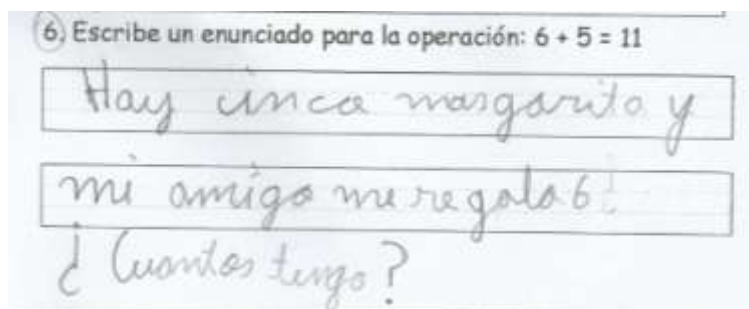 6. Escribe un enunciado para la operación: 6 + 5 = 11
Hay cinco margarita y
mi amigo me regala 6.
¿Cuantos tengo?